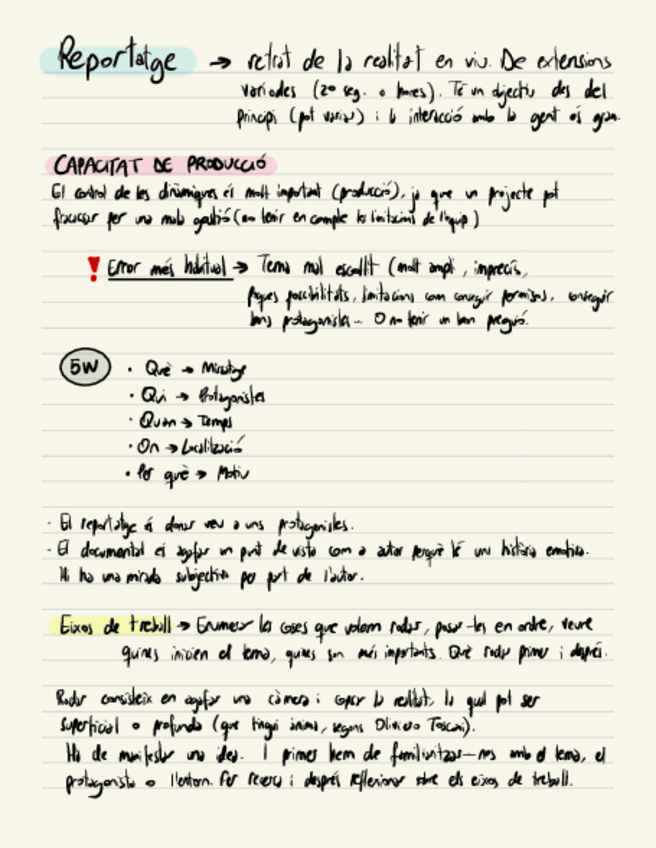 Reportatge → retrat de la realitat en viu. De extensions
variades (20 seg. o hores). Té un objectiu des del
principi (pot variar) i la interacció amb la gent és gran.
CAPACITAT DE PRODUCCIÓ
El control de les dinàmiques és molt important (producció), ja que un projecte pot
fracasar per una mala gestió (no tenir en compte les limitacions de l'equip)
! Error més habitual → Tema mal escollit (molt ampli, imprecís,
poques possibilitats, limitacions com conseguir permisos, conseguir
bons protagonistes... O no tenir un bon preguió.
5W
• Què → Missatge
• Qui → Protagonistes
• Quan → Temps
• On → Localització
• Per què → Motiu
- El reportatge és donar veu a uns protagonistes.
- El documental és agafar un punt de vista com a autor perquè té una història emotiva.
Hi ha una mirada subjectiva per part de l'autor.
Eixos de treball → Enumerar les coses que volem rodar, posar-les en ordre, veure
quines inicien el tema, quines son més importants. Què rodar primer i després.
Rodar consisteix en agafar una càmera i copsar la realitat, la qual pot ser
superficial o profunda (que tingui ànima, segons Oliviero Toscani).
Ha de manifestar una idea. I primer hem de familiaritzar-nos amb el tema, el
protagonista o l'entorn. Fer recerca i després reflexionar sobre els eixos de treball.